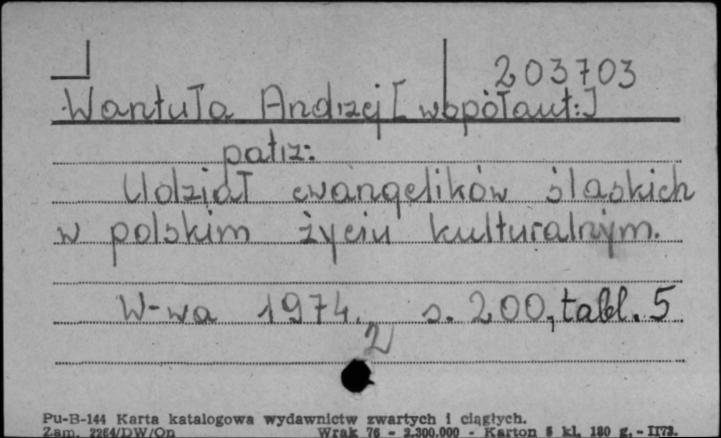 203703
Wantuła Andrzej [współaut:]
patrz:
Udział ewangelików śląskich
w polskim życiu kulturalnym.
W-wa 1974. s. 200, tabl. 5
2
Pu-B-144 Karta katalogowa wydawnictw zwartych i ciągłych.
Zam. 2264/DW/On Wrak 76 - 2.300.000 - Karton 5 kl. 180 g. - II73.